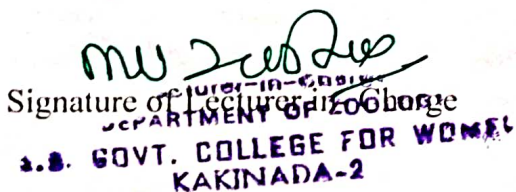 Signature of Lecturer-in-Charge
Lecturer-in-Charge
DEPARTMENT OF ZOOLOGY
GOVT. COLLEGE FOR WOMEN
KAKINADA-2